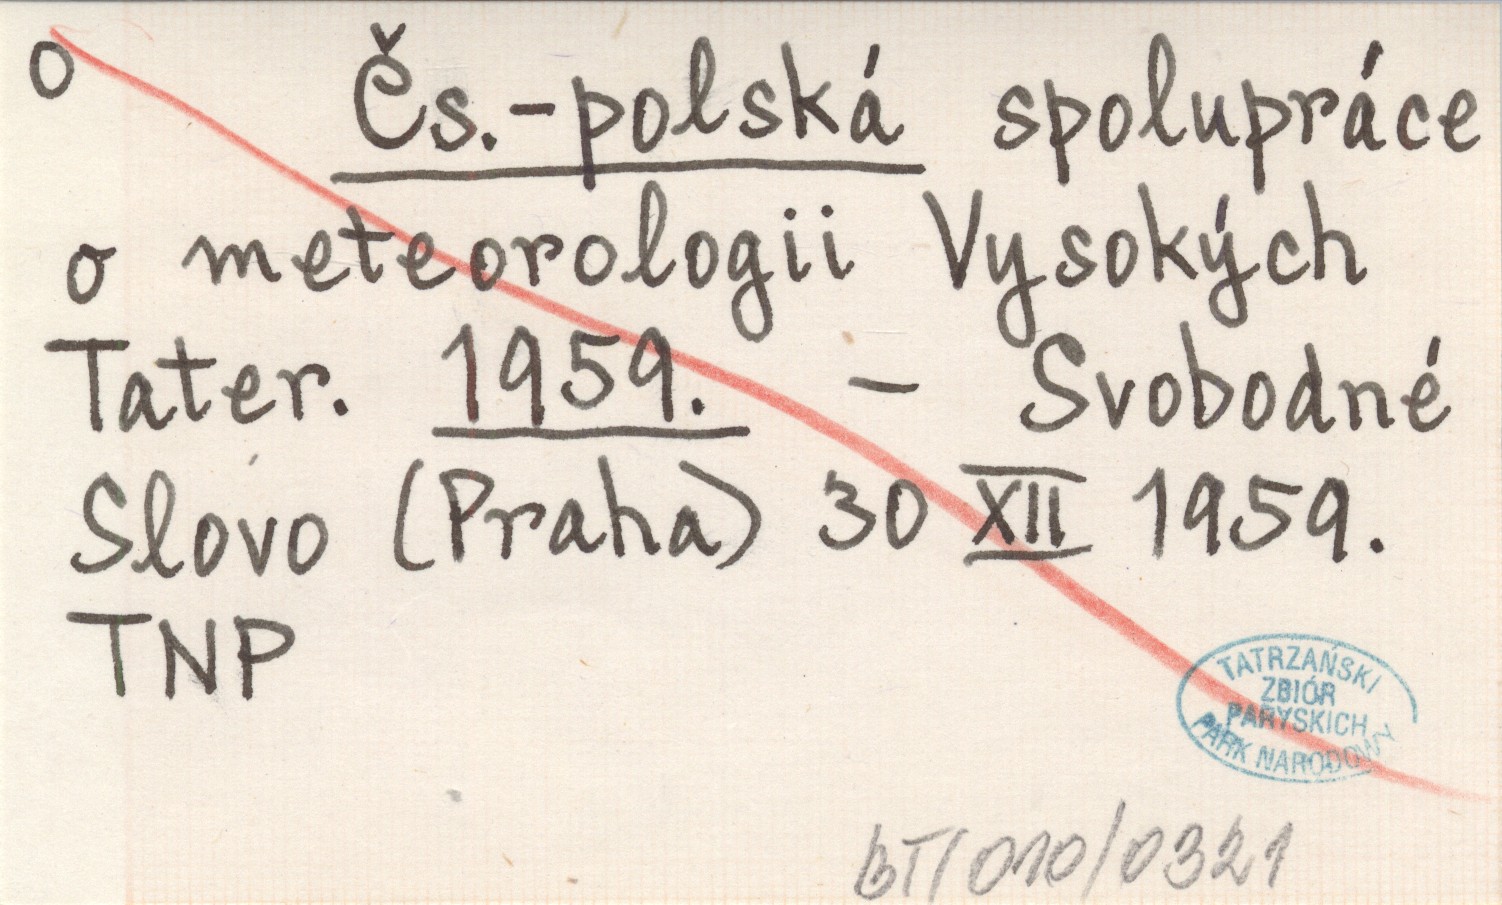 o Čs.-polská spolupráce
o meteorologii Vysokých
Tater. 1959. – Svobodné
Slovo (Praha) 30 XII 1959.
TNP
TATRZAŃSKI
ZBIÓR
PARYSKICH
PARK NARODOWY
BT/010/0321